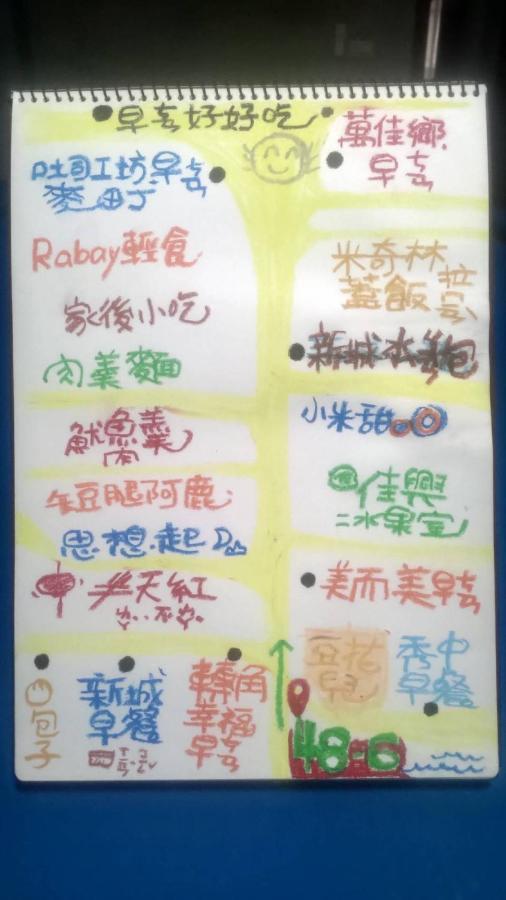 早去好好吃
吐司工坊早去
麥田丁
Rabay輕食
家後小吃
肉羹麵
魷魚羹
肉
豆腿阿鹿
思想起
天紅
包子
新城
早餐
轉角
幸福
早去
萬佳鄉
早去
米奇林
蓋飯
新城水煎包
小米甜
佳興
冰果室
美而美早去
豆花
兒
秀中
早餐
48-6